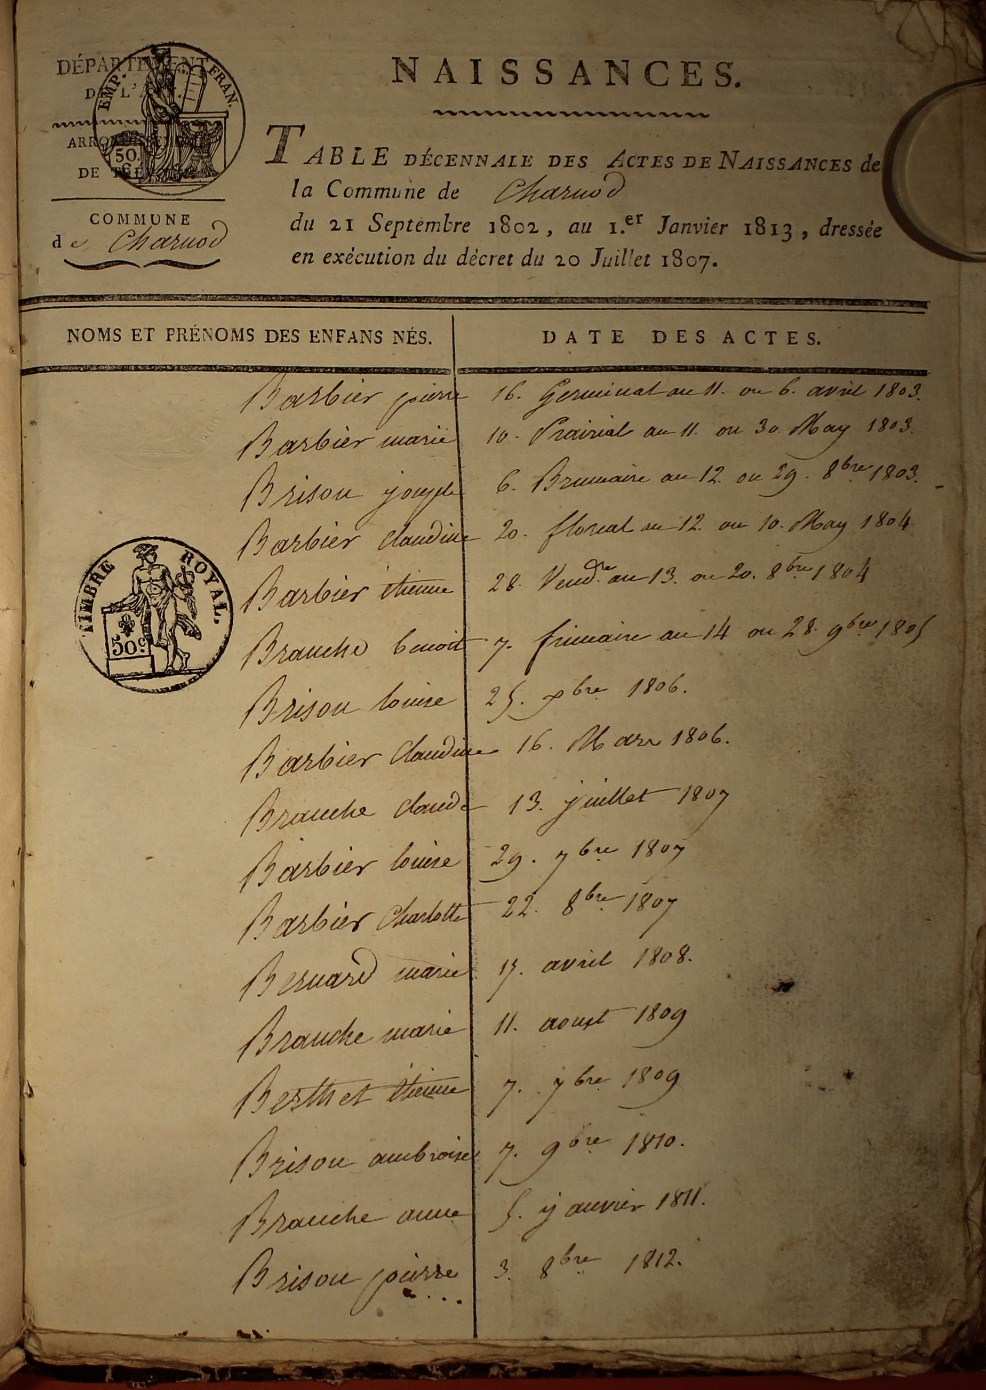 DÉPARTEMENT
DE L'AIN.
ARRONDISSEMENT
DE TRÉVOUX
COMMUNE
de Charnod
EMP. FRAN.
50.
NAISSANCES.
TABLE DÉCENNALE DES ACTES DE NAISSANCES de
la Commune de Charnod
du 21 Septembre 1802, au 1.er Janvier 1813, dressée
en exécution du décret du 20 Juillet 1807.
NOMS ET PRÉNOMS DES ENFANS NÉS. DATE DES ACTES.
Barbier pierre 16. Germinal au 11. ou 6. avril 1803.
Barbier marie 10. Prairial au 11. ou 30. May 1803.
Brison joseph 6. Brumaire au 12. ou 29. 8bre 1803.
Barbier Claudine 20. floreal au 12 ou 10. May 1804
Barbier étienne 28. Vendre au 13. ou 20. 8bre 1804
TIMBRE ROYAL.
50c
Branche benoit 7. frimaire au 14 ou 28. 9bre 1805
Brison louise 25. xbre 1806.
Barbier Claudine 16. Mars 1806.
Branche Claude 13. juillet 1807
Barbier louise 29. 7bre 1807
Barbier Charlotte 22. 8bre 1807
Bernard marie 15. avril 1808.
Branche marie 11. aoust 1809
Berthet étienne 7. 7bre 1809
Brison ambroise 7. 9bre 1810.
Branche anne 5. janvier 1811.
Brison pierre 3. 8bre 1812.